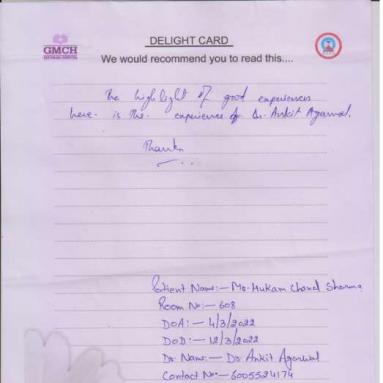 GMCH
DELIGHT CARD
We would recommend you to read this....
The highlight of good experiences
here is the experience of Dr. Ankit Agarwal.
Thanks
Patient Name:- Mr. Hukam Chand Sharma
Room No:- 608
DOA:- 4/3/2022
DOD:- 12/3/2022
Dr. Name:- Dr Ankit Agarwal
Contact No:- 6005524174